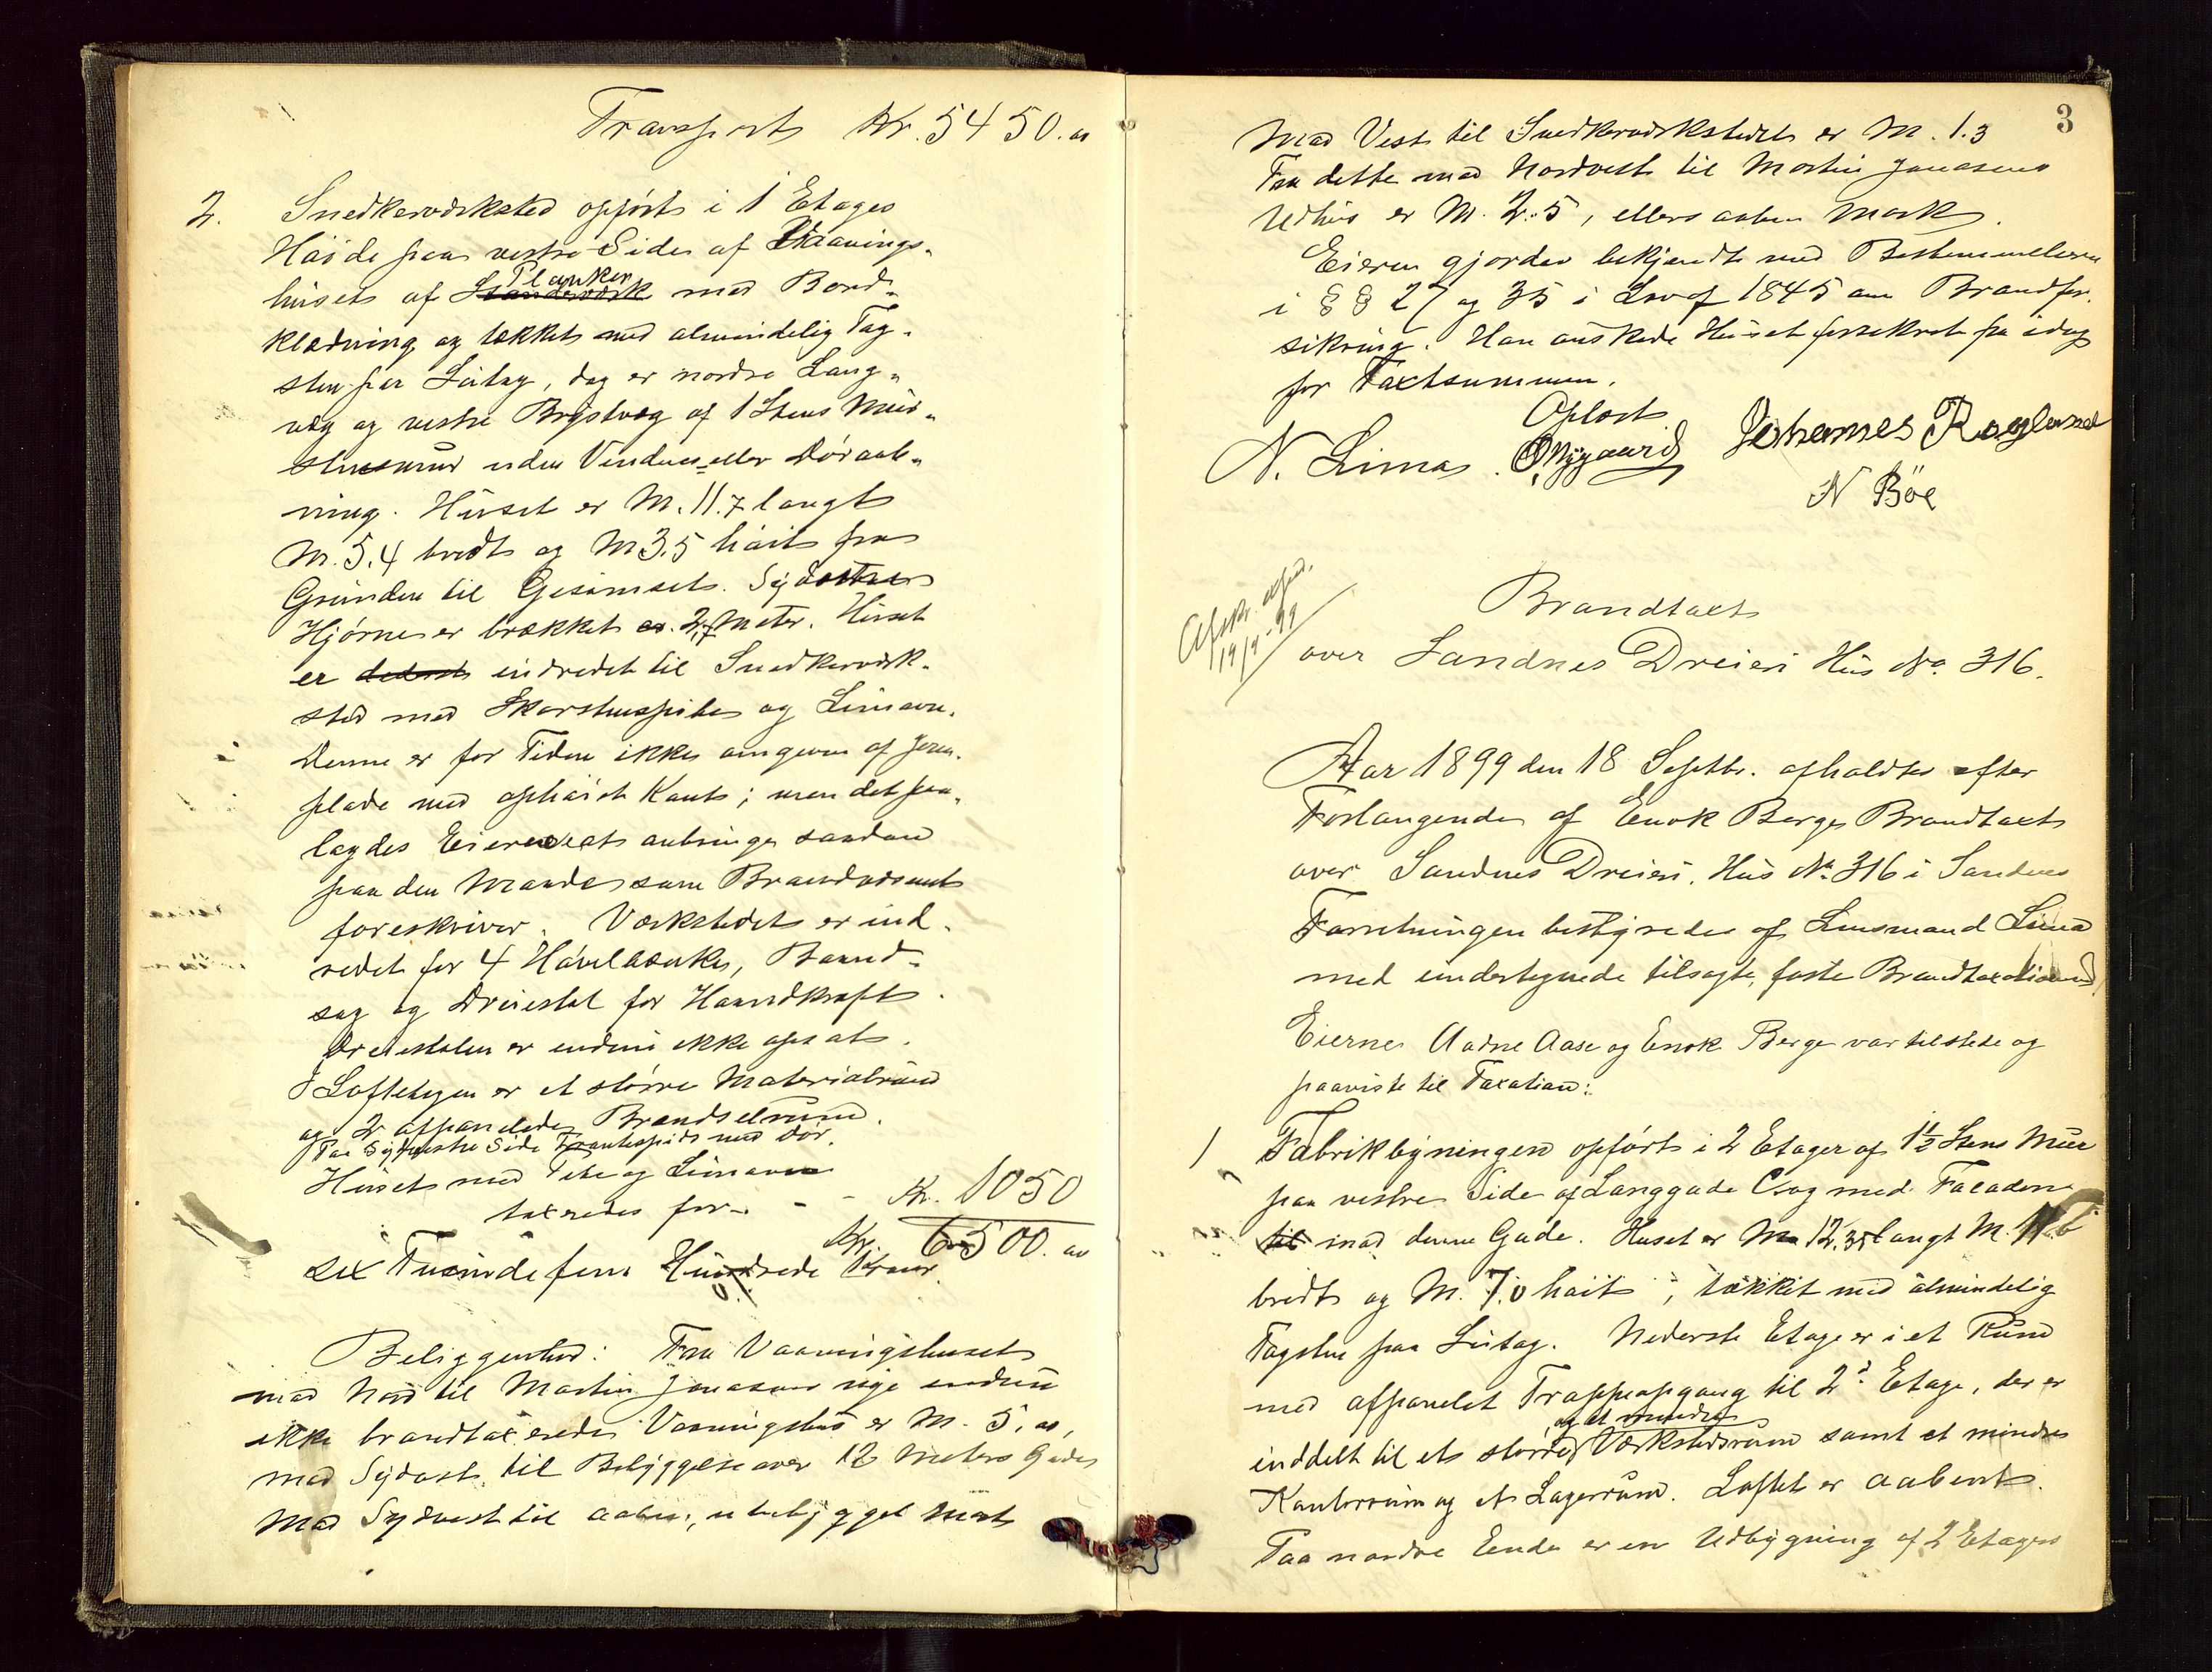 Transport Kr. 5450.00
2. Snedkerværksted opført i 1 Etages
Høide paa vestre Side af Vaanings-
Planker
huset af Standerværk med Bord-
klædning og tækket med almindelig Tag-
sten paa Sutag, dog er nordre Lang-
væg og vestre Brystvæg af 1 Stens Mur-
stensmur uden Vindues eller Døraab-
ning. Huset er M. 11.7 langt
M. 5.4 bredt og M 3.5 høit fra
Grunden til Gesimset. Sydvestre
Hjørne er brækket 2,7 Meter. Huset
er indredet til Snedkerværk-
sted med Skorstenspibe og Limovn.
Denne er for Tiden ikke omgiven af Jern-
plade med ophøiet Kant; men det paa-
lagdes Eieren at anbringe saadan
paa den Maade som Brandvæsenet
foreskriver. Værkstedet er ind-
redet for 4 Høvlbænke, Baand-
sag og Dreiestol for Haandkraft.
Dreiestolen er endnu ikke opsat.
I Loftetagen er et større Materialrum
og 2 afpanelede Brændselrum.
Paa Sydvestre Side Frontespids med Dør.
Huset med Pibe og Limovn
taxeredes for - - Kr. 1050
Kr. 6500.00
sex Tusinde fem Hundrede Kroner.
Beliggenhed: Fra Vaaningshuset
mod Nord til Martin Jonasens nye endnu
ikke brandtaxerede Vaaningshus er M. 5.00,
mod Sydost til Bebyggelse over 12 Meters Gade
Mod Sydvest til aaben, ubebygget Mark
3
Mod Vest til Snedkerværkstedet er M. 1.3
Fra dette mod Nordvest til Martin Jonasens
Udhus er M. 2.5, ellers aaben Mark.
Eieren gjordes bekjendt med Bestemmelserne
i §§ 27 og 35 i Lov af 1845 om Brandfor-
sikring. Han ønskede Huset forsikret fra idag
for Taxtsummen.
Oplæst
N. Lima. O. Nygaard Johannes Rogland
N Böe
Afskr. afgid.
19/9-99
Brandtaxt
over Sandnes Dreieri Hus No. 316.
Aar 1899 den 18 Septbr. afholdtes efter
Forlangende af Enok Berge Brandtaxt
over Sandnes Dreieri, Hus No. 316 i Sandnes
Forretningen bestyredes af Lensmand Lima
med undertegnede tilsagte, faste Brandtaxationsmænd
Eierne Aadne Aase og Enok Berge var tilstede og
paaviste til Taxation:
1 Fabrikbygningen opført i 2 Etager af 1½ Stens Mur
paa vestre Side af Langgade og med Facaden
til mod denne Gade. Huset er M 12,35 langt M.
bredt og M. 7.0 høit, tækket med almindelig
Tagsten paa Sutag. Nederste Etage er i et Rum
med afpanelet Trappeopgang til 2d Etage, der er
og et mindre
inddelt til et større Værkstedsrum samt et mindre
Kontorrum og et Lagerrum. Loftet er aabent.
Paa nordre Ende er en Udbygning af 2 Etagers